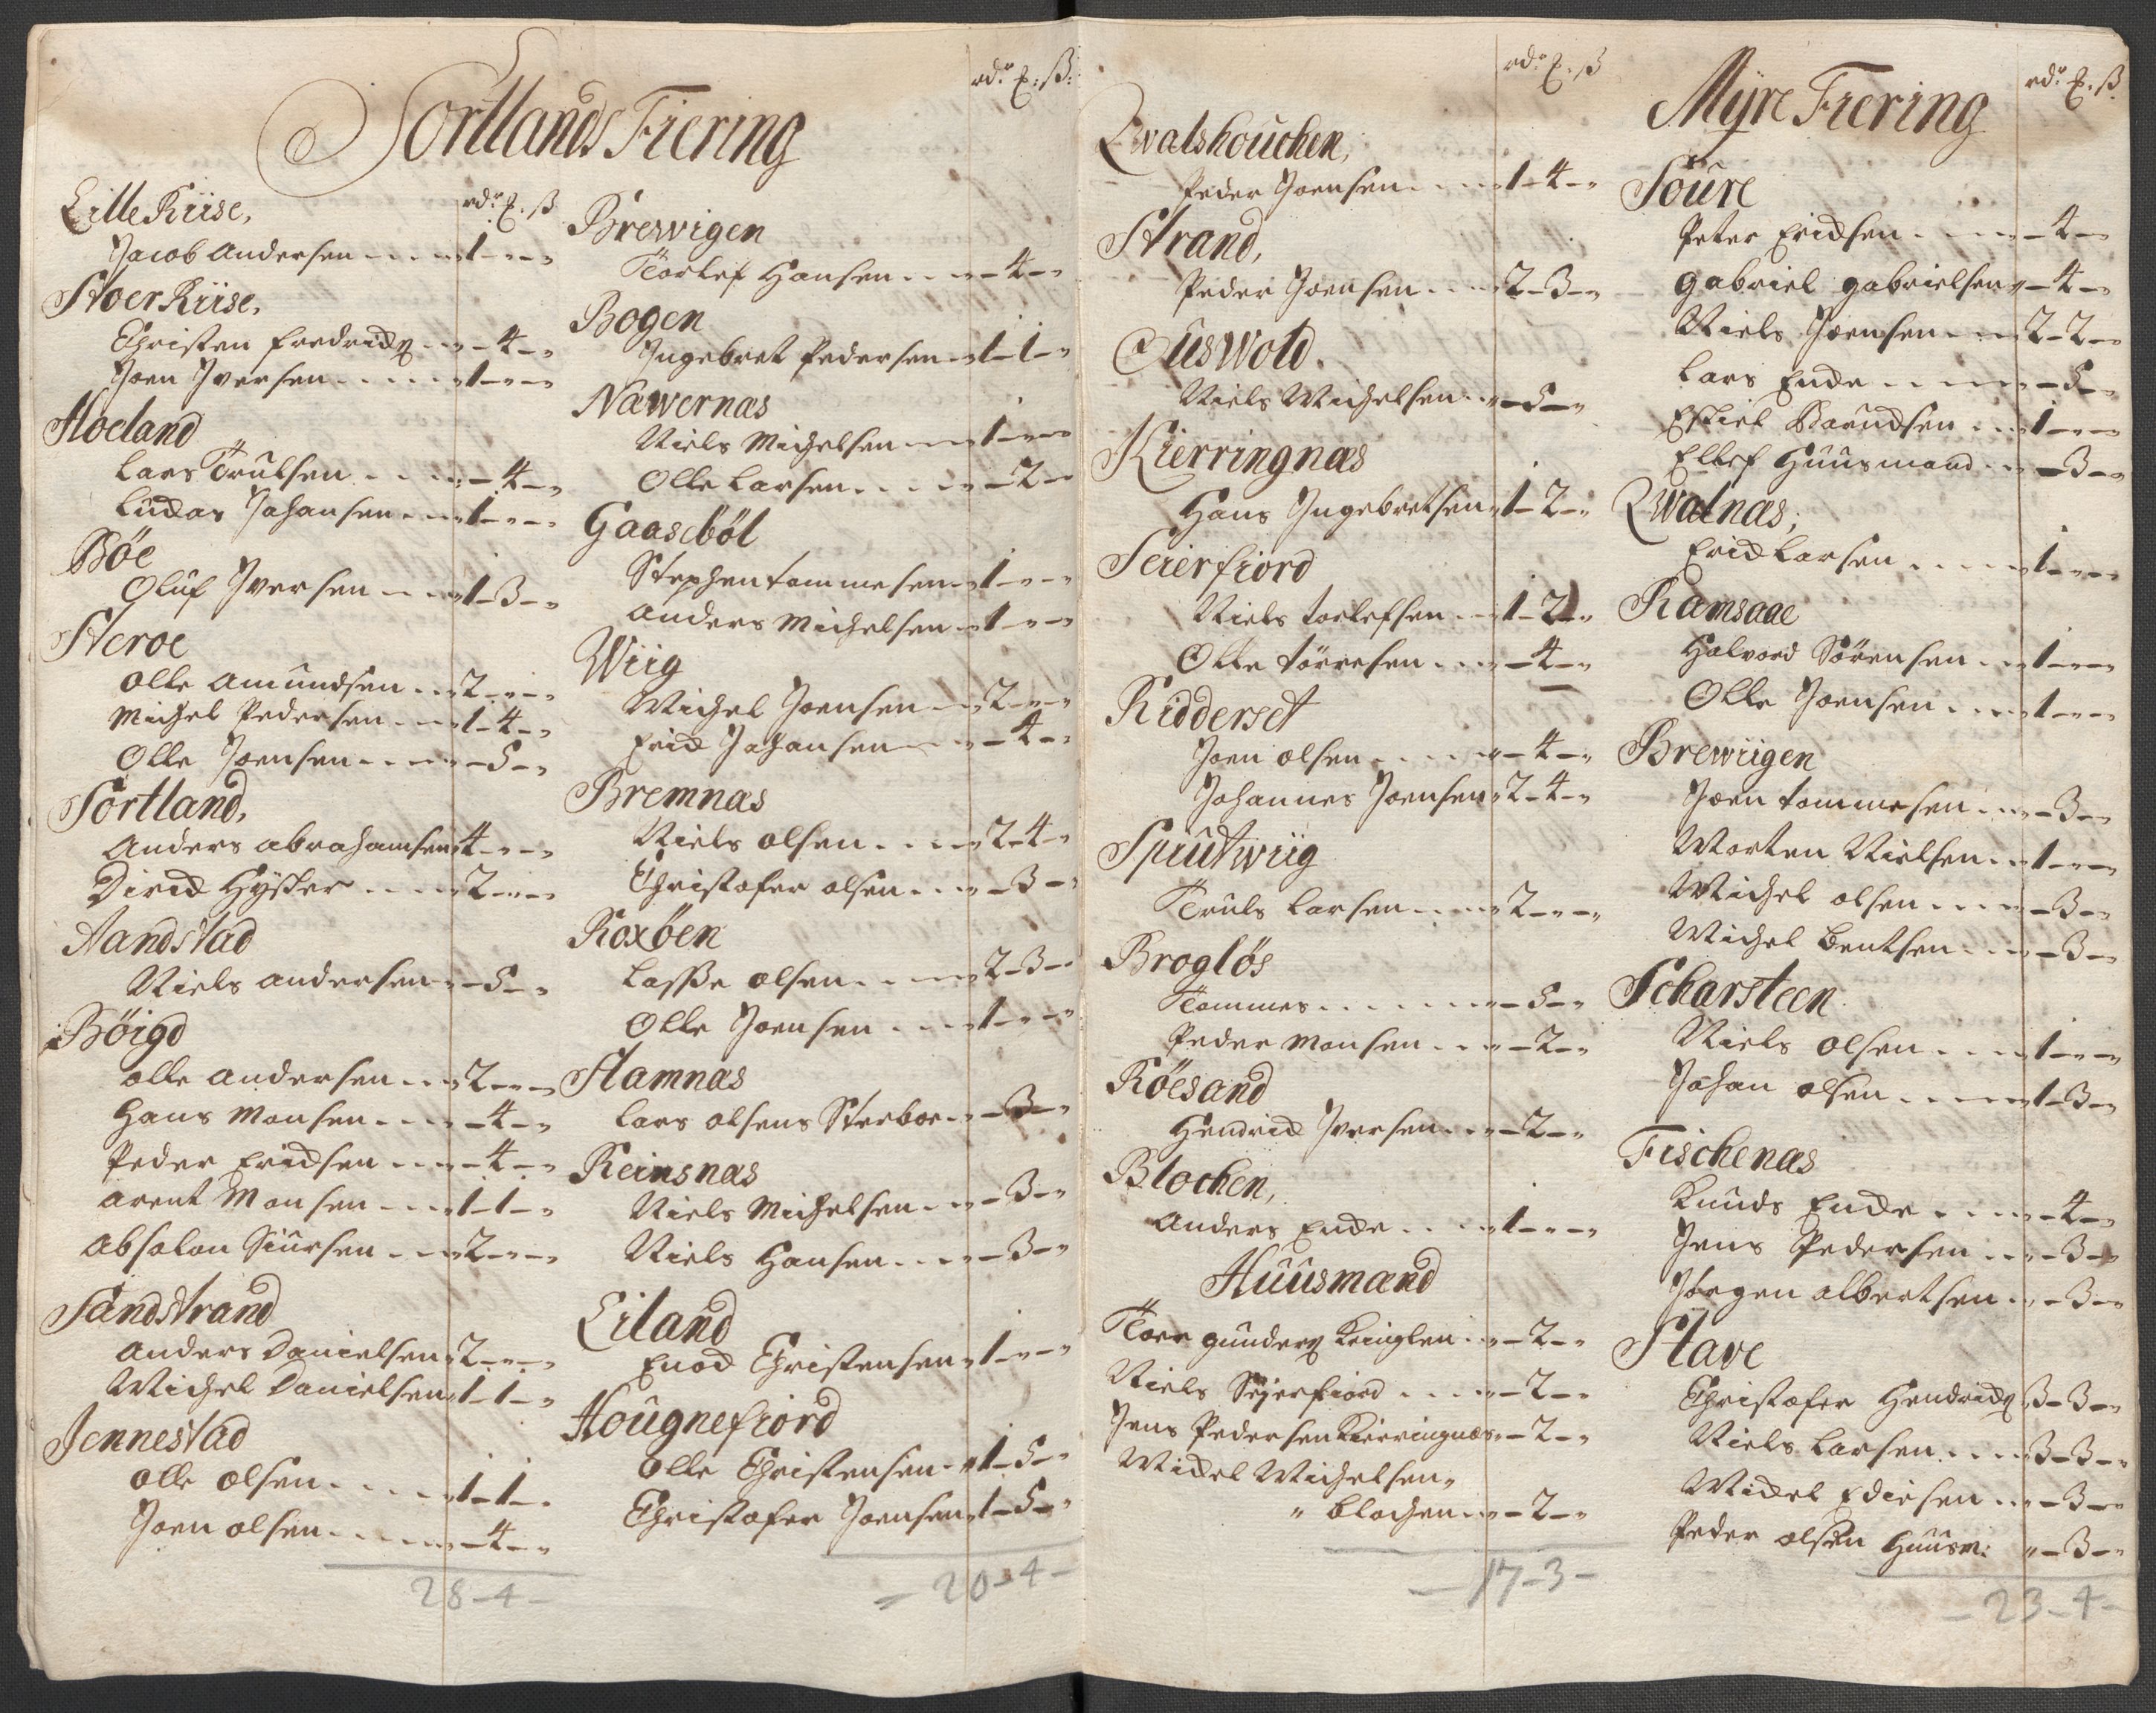 Sortlands Fiering
rdr. E: ß:
Lille Kiise,
rdr. E. ß
Jacob Andersen - - - „1-„-„
Stoer Kiise,
Christen Fredrichs - „-4-„
Joen Iversen - - - - „1-„-„
Hoeland
Lars Trulsen - - - - „-4-„
Ludas Johansen - - „1-„-„
Böe
Oluf Iversen - - - „1-3-„
Steroe
Olle Amundsen - - „2-„-„
Michel Pedersen - - „1-4-„
Olle Joensen - - - - „-5-„
Sortland,
Anders Abrahamsen „4-„-„
Dirich Hysker - - - - „2-„-„
Aandstad
Niels Andersen - „-5-„
Böigd
Olle Andersen - - „2-„-„
Hans Monsen - - - „-4-„
Peder Erichsen - - „-4-„
Arent Monsen - - - „1-1-„
Absolon Siursen - - „2-„-„
Sandstrand
Anders Danielsen „2-„-„
Michel Danielsen „1-1-„
Jennestad
Olle Olsen - - - - „1-1-„
Joen Olsen - - - - - „-4-„
28-4-
Brewigen
Torlef Hansen - - „-4-„
Bogen
Ingebret Pedersen „1-1-„
Nawernas
Niels Michelsen - - „1-„-„
Olle Larsen - - - - „-2-„
Gaaseböl
Stephen Tommesen „1-„-„
Anders Michelsen „1-„-„
Wiig
Michel Joensen - „2-„-„
Erich Johansen - - „-4-„
Bremnas
Niels Olsen - - - „2-4-„
Christofer Olsen - - „-3-„
Roxöen
Lasse Olsen - - - „2-3-„
Olle Joensen - - - „1-„-„
Stamnas
Lars Olsens Sterboe - „-3-„
Reinsnas
Niels Michelsen - „-3-„
Niels Hansen - - - „-3-„
Eiland
Enod Christensen „1-„-„
Hougnefiord
Olle Christensen - „1-5-„
Christofer Joensen „1-5-„
20-4-
rdr. E. ß
Qwalshouchen,
Peder Joensen - - - „1-4-„
Strand,
Peder Joensen - - - „2-3-„
Ouswold.
Niels Michelsen - „-5-„
Kierringnas
Hans Ingebretsen „1-2-„
Seierfiord
Niels Torlefsen - - „1-2-„
Olle Törresen - - - „-4-„
Ridderset
Joen Olsen - - - - „-4-„
Johannes Joensen „2-4-„
Spiutwiig
Truls Larsen - - - „2-„-„
Broglös
Tommes - - - - - „-5-„
Peder Monsen - - „-2-„
Röesand
Hendrich Iversen - „-2-„
Blochen,
Anders Ende - - - „1-„-„
Huusmænd
Tore Gunders Kringlen „-2-„
Niels Sejerfiord - - - „-2-„
Jens Pedersen Kierringnas „-2-„
Michel Michelsen „
„ Blochen - „-2-„
17-3-
Myre Fiering
rdr. E. ß.
Soure
Peter Erichsen - - - „-4-„
Gabriel Gabrielsen „-4-„
Niels Joensen - - „2-2-„
Lars Ende - - - - „-5-„
Eskiel Baardsen - - „1-„-„
Ellef Huusmand - - „-3-„
Qwalnas,
Erich Larsen - - - - „1-„-„
Ramsaae
Halvord Sörensen - - „1-„-„
Olle Joensen - - - „1-„-„
Brewiigen
Joen Tommesen - - „-3-„
Morten Nielsen - - „1-„-„
Michel Olsen - - - „-3-„
Michel Bentsen - - - „-3-„
Scharsteen
Niels Olsen - - - „1-„-„
Johan Olsen - - - - „1-3-„
Fischenas
Knuds Ende - - - - „-4-„
Jens Pedersen - - - „-3-„
Jörgen Albertsen - „-3-„
Stave
Christofer Hendrichs „3-3-„
Niels Larsen - - - „3-3-„
Michel Ediesen - - „-3-„
Peder Olsen Huusm: „-3-„
23-4-